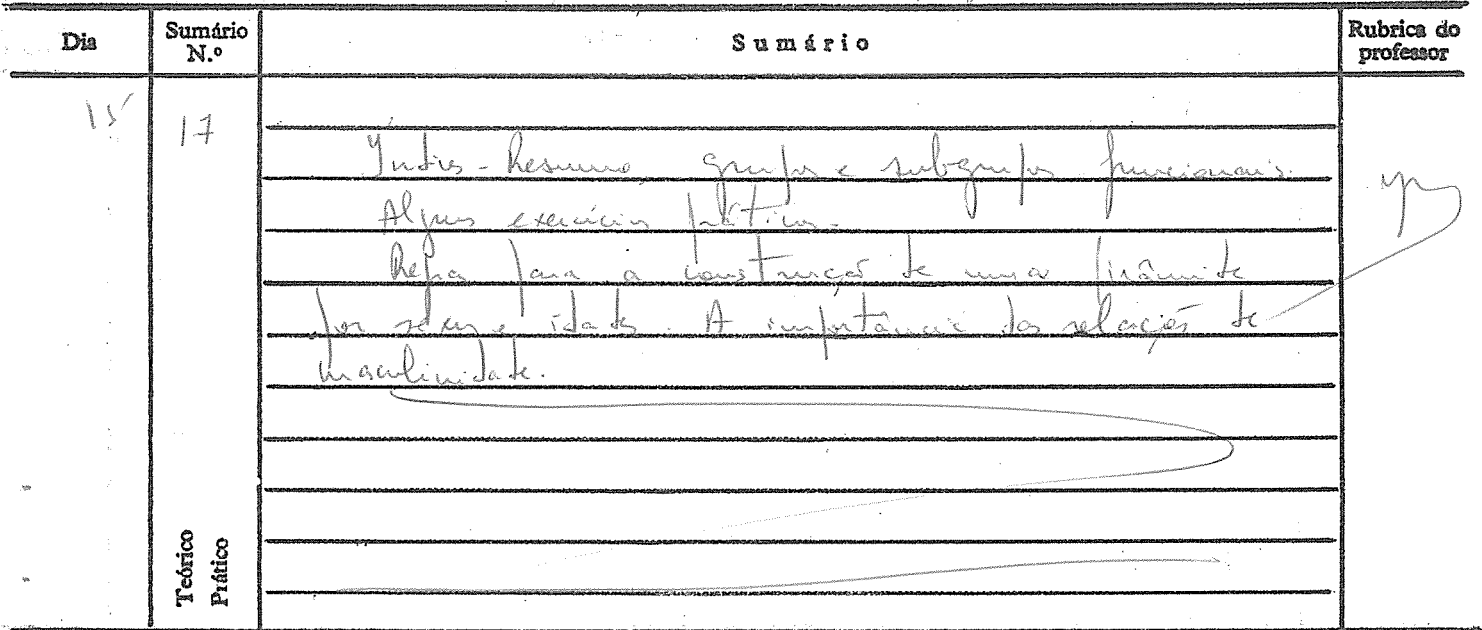 Dia
Sumário N.º
Sumário
Rubrica do professor
15
17
Índices-Resumo, grupos e subgrupos funcionais.
Alguns exercícios práticos.
Regra para a construção de uma pirâmide
por sexos e idades. A importância das relações de
masculinidade.
Teórico
Prático